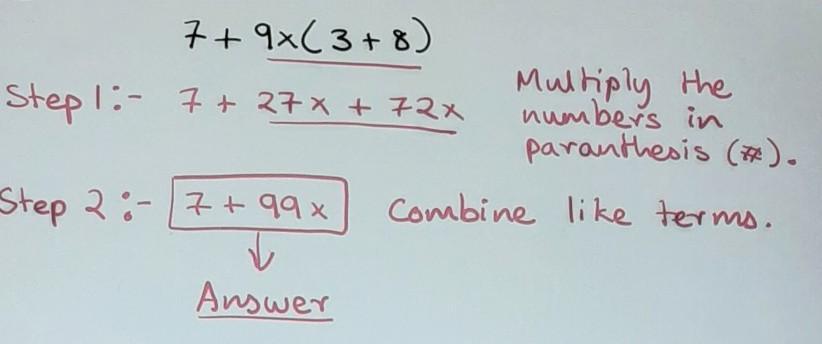 7 + 9x ( 3 + 8 )
Step 1 :- 7 + 27x + 72x
Multiply the
numbers in
paranthesis (#).
Step 2 :- 7 + 99x Combine like terms.
Answer